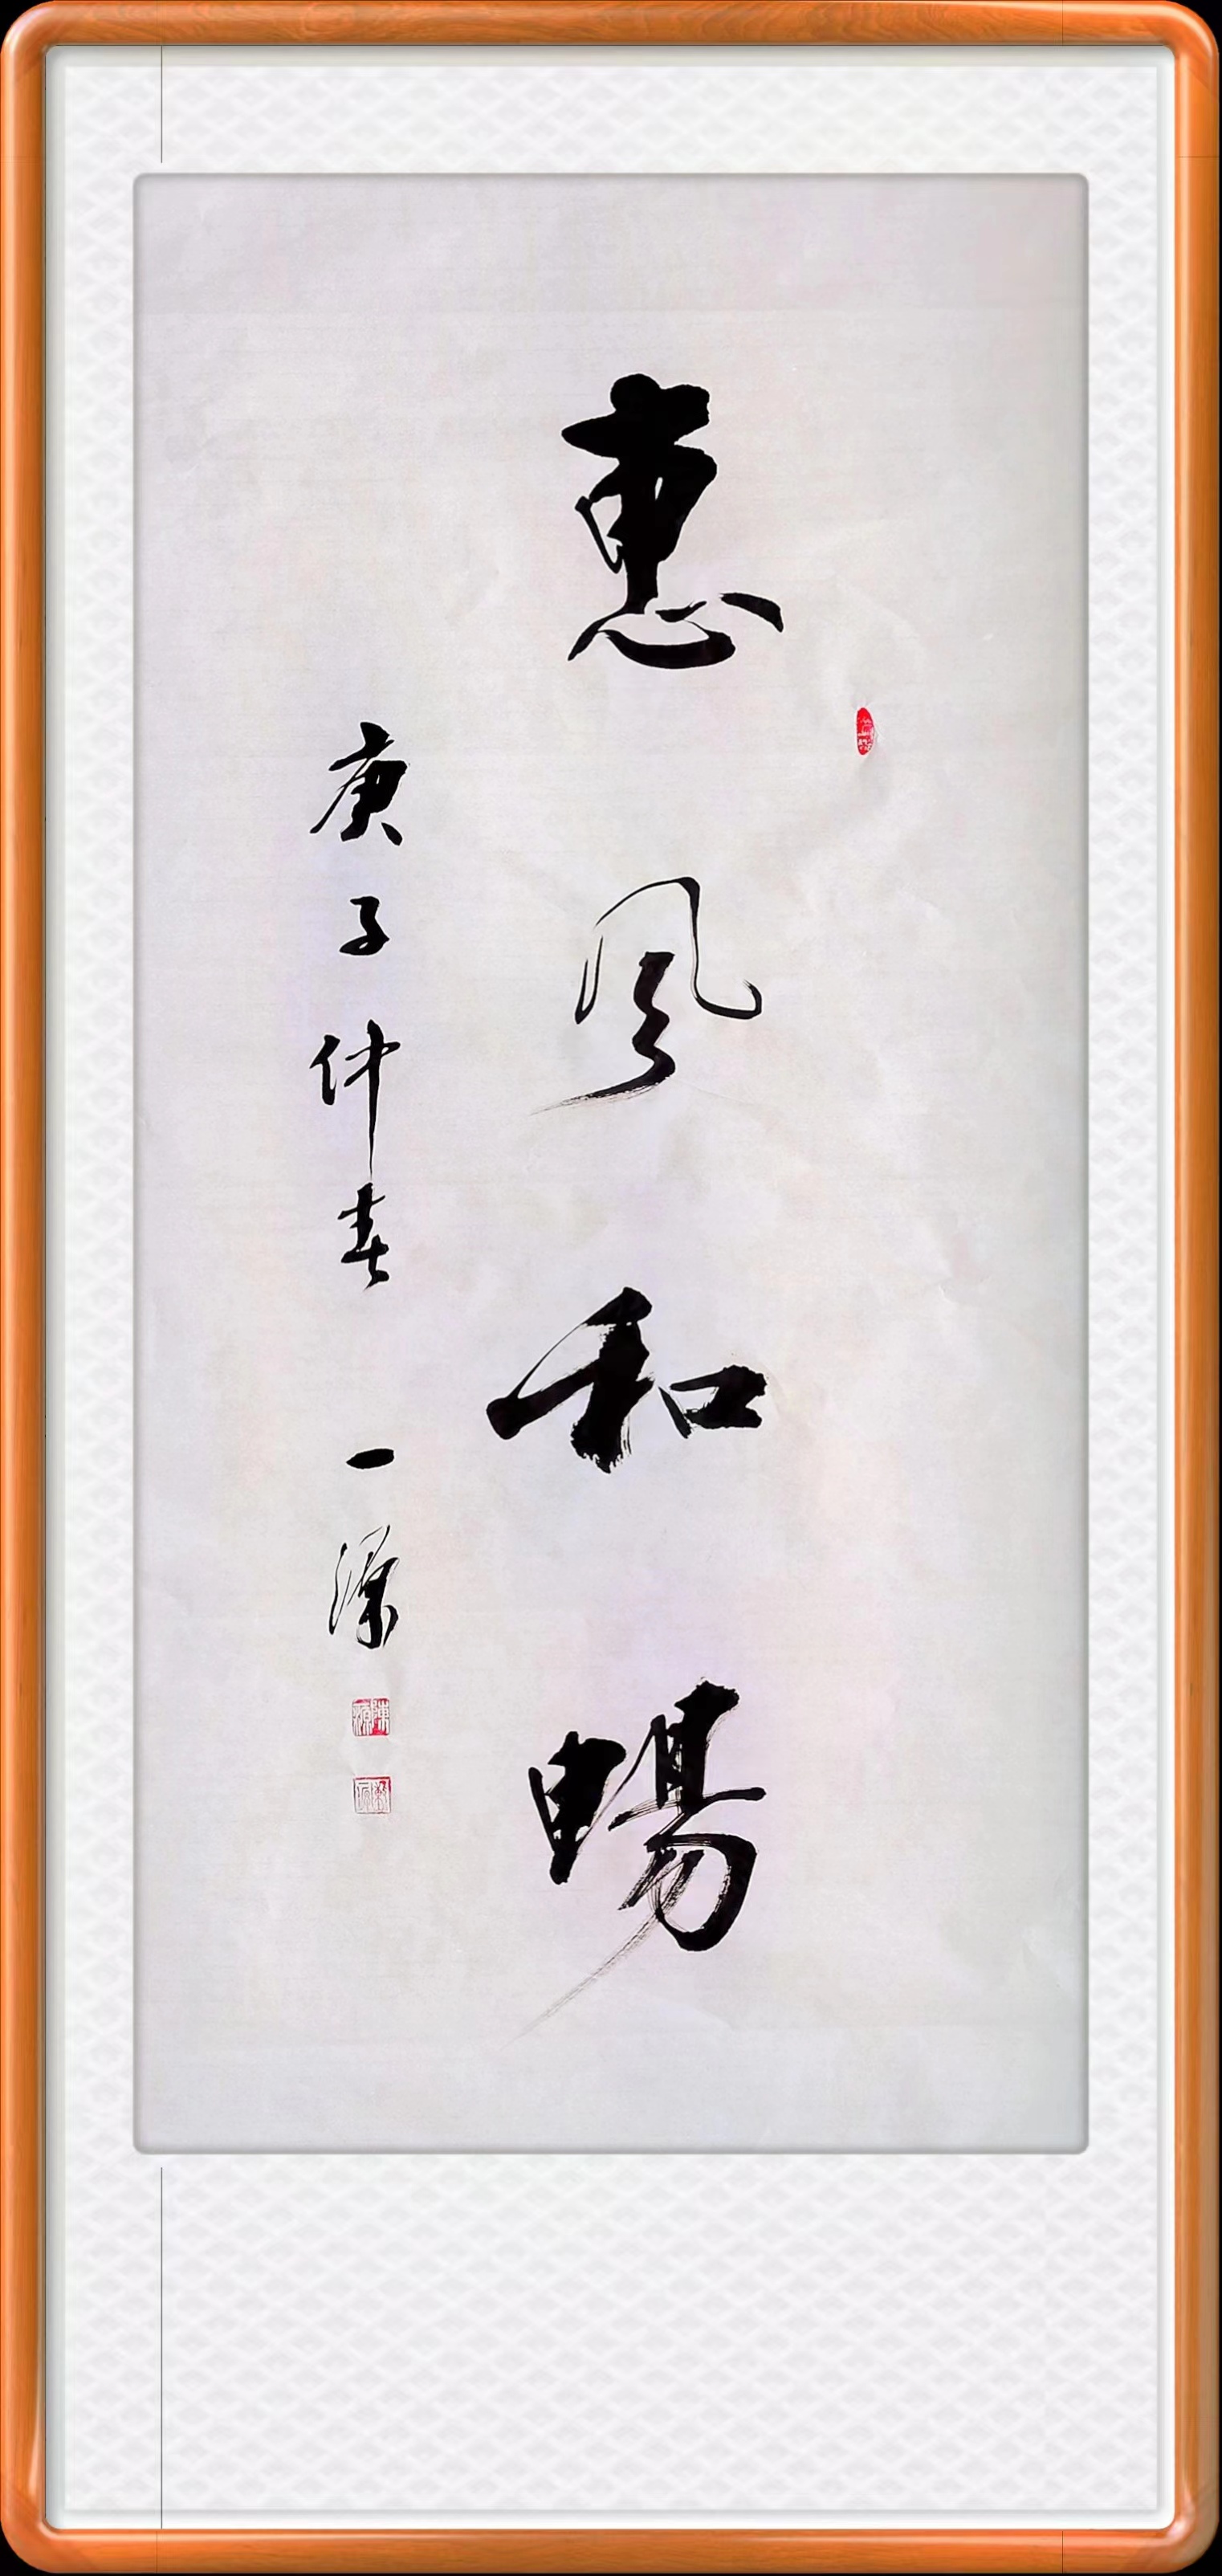 惠风和畅
庚子仲春 一源